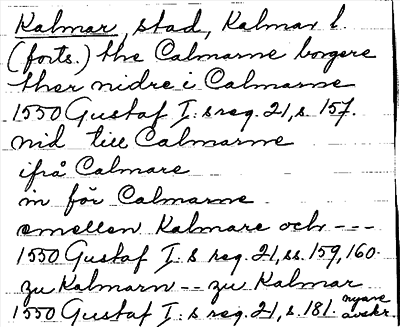 Kalmar, stad, Kalmar l.
(forts.) the Calmarne borgere
ther nidre i Calmarne
1550 Gustaf I:s reg. 21, s. 157.
nid till Calmarne
ifrå Calmare
in för Calmarne
emellen Kalmare och ---
1550 Gustaf I:s reg. 21, ss. 159, 160.
zu Kalmarn -- zu Kalmar
1550 Gustaf I:s reg. 21, s. 181. nyare avskr.